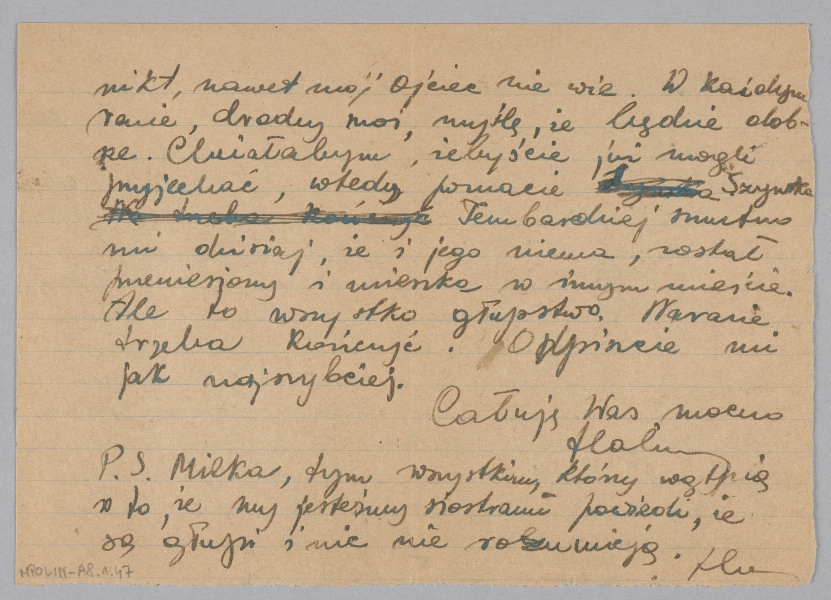 nikt, nawet mój ojciec nie wie. W każdym
razie, drodzy moi, myślę, że będzie dob-
rze. Chciałabym, żebyście już mogli
przyjechać, wtedy poznacie Szymka
Tembardziej smutno
mi dzisiaj, że i jego niema, został
przeniesiony i mieszka w innym mieście.
Ale to wszystko głupstwo. Narazie
trzeba kończyć. Odpiszcie mi
jak najszybciej.
Całuję Was mocno
P.S. Milka, tym wszystkim, którzy wątpią
w to, że my jesteśmy siostrami powiedz, że
są głupi i nic nie rozumieją.
MPOLIN-A8.1.47